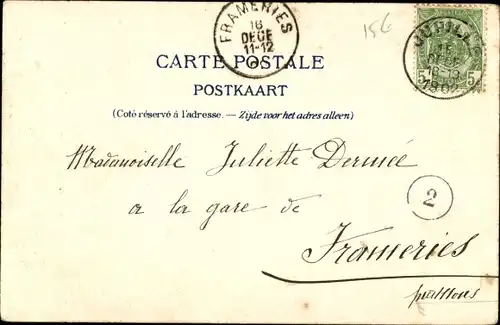 FRAMERIES
16
DECE
11-12
156
JUPILLE
15
DECE
1902
5 5
CARTE POSTALE
POSTKAART
(Coté réservé à l'adresse. — Zijde voor het adres alleen)
Mademoiselle Juliette Dermée
2
a la gare de
Frameries